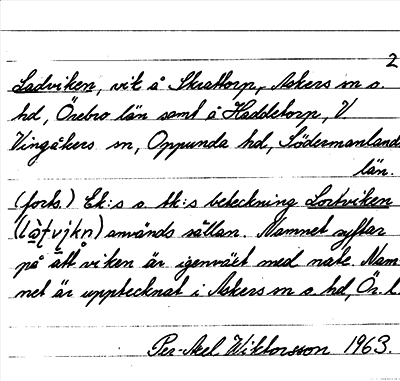 2
Ladviken, vik å Skrattorp, Askers sn o.
hd, Örebro län samt å Haddetorp, V
Vingåkers sn, Oppunda hd, Södermanlands
län.
(forts.) Ek:s o. tk:s beteckning Lortviken
används sällan. Namnet syftar
på att viken är igenväxt med nate. Nam
net är upptecknat i Askers sn o. hd, Ör. l.
Per-Axel Wiktorsson 1963.